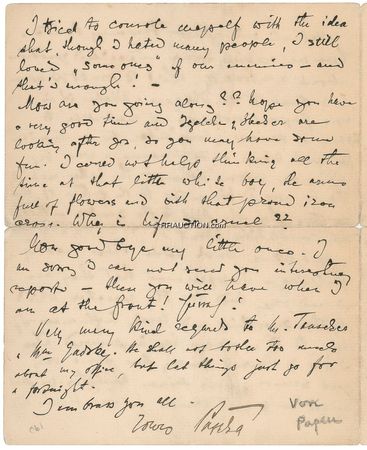 I tried to console myself with the idea
that, though I hated many people, I still
loved "some ones" of our enemies – and
that is enough! –
How are you going along?? hope you have
a very good time and are
looking after you, so you may have some
fun. I could not help thinking all the
time at that little white boy, the arms
full of flowers and with that proud iron
cross. Why is life so cruel ??
RRAUCTION.com
Now good bye my little ones, I
am sorry I can not send you interesting
reports – then you will have when I
am at the front!
Very many kind regards to Mr.
& Mrs. He shall not bother too much
about my office, but let things just go for
a fortnight.
I embrass you all.
Yours
Von
Papen